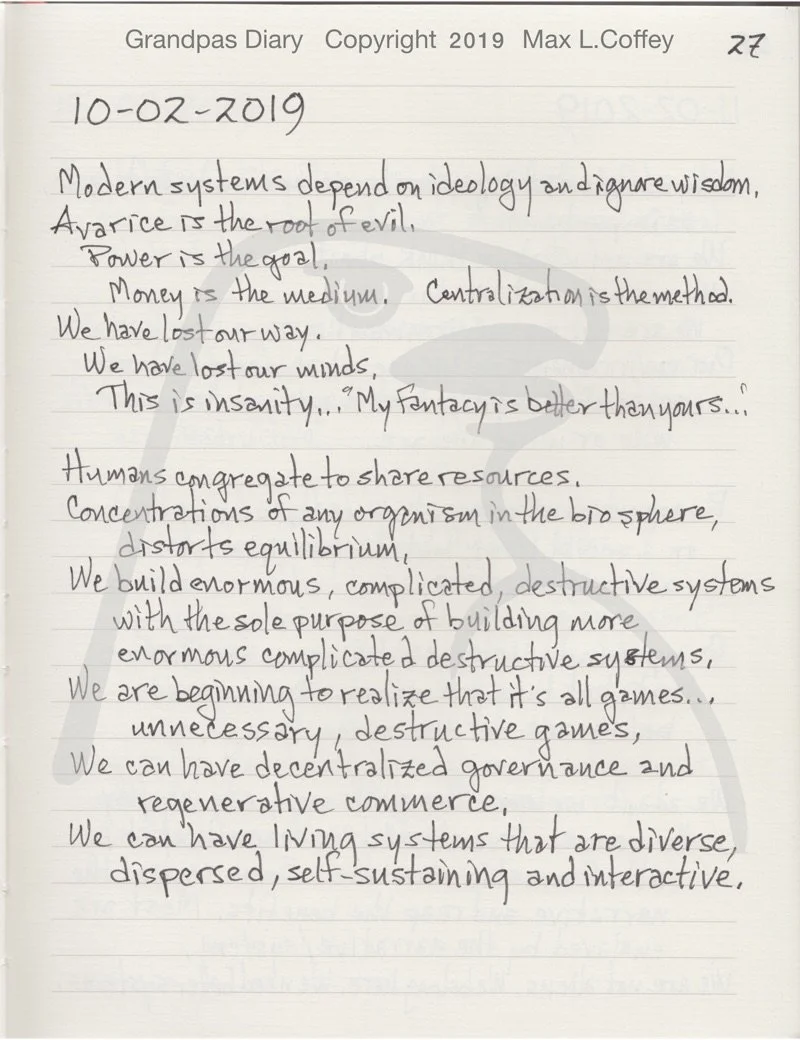 Grandpas Diary Copyright 2019 Max L.Coffey 27
10-02-2019
Modern systems depend on ideology and ignore wisdom,
Avarice is the root of evil,
Power is the goal,
Money is the medium. Centralization is the method.
We have lost our way.
We have lost our minds,
This is insanity... "My Fantacy is better than yours..."
Humans congregate to share resources.
Concentrations of any organism in the biosphere,
distorts equilibrium,
We build enormous, complicated, destructive systems
with the sole purpose of building more
enormous complicated destructive systems,
We are beginning to realize that it's all games...
unnecessary, destructive games,
We can have decentralized governance and
regenerative commerce,
We can have living systems that are diverse,
dispersed, self-sustaining and interactive.